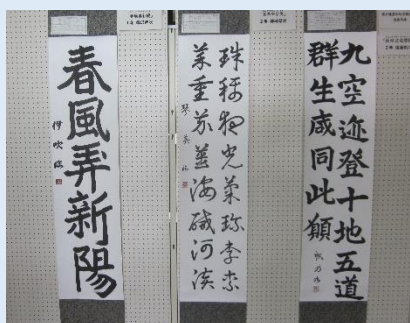 九空迩登十地五道
群生咸同此願
珠稱夜光菓珍李柰
菜重芥薑海鹹河淡
春風弄新陽
伊吹臨